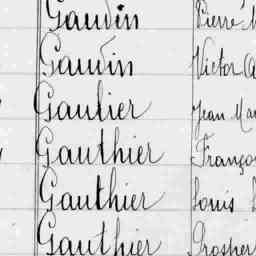 Gaudin Pierre
Gaudin Victor
Gautier Jean
Gauthier
Gauthier Louis
Gauthier Prosper